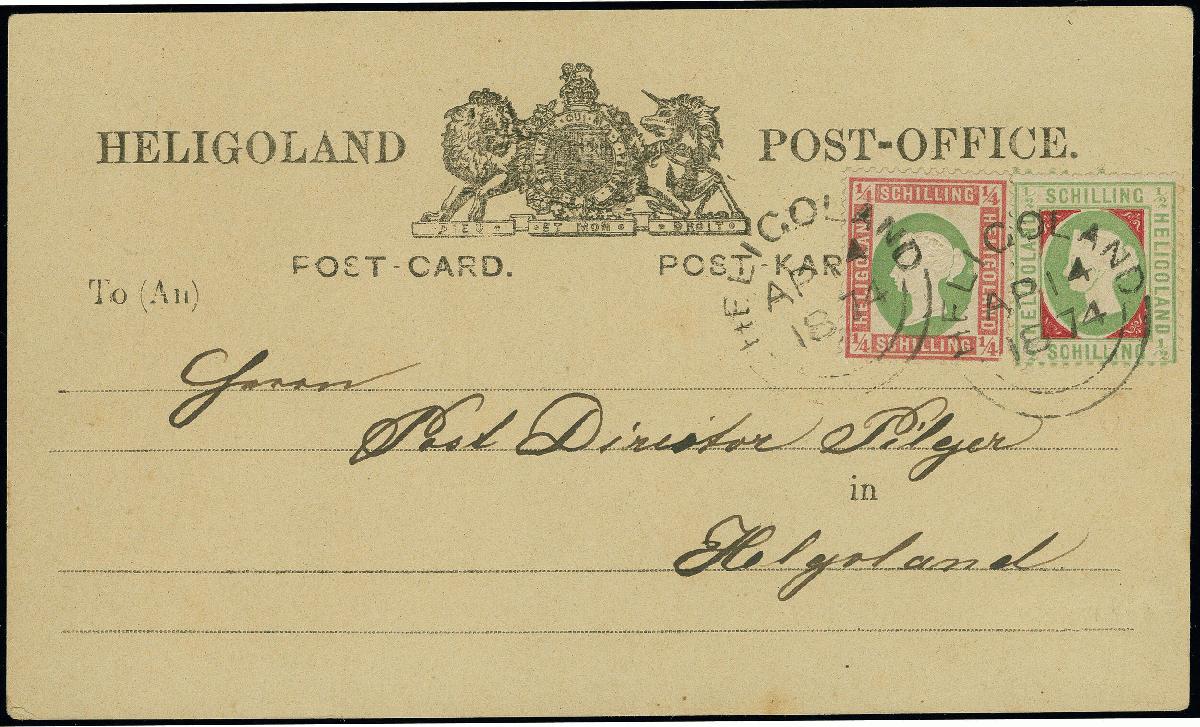 HELIGOLAND POST-OFFICE.
DIEU ET MON DROIT
POST-CARD. POST-KAR
To (An)
1/4 SCHILLING 1/4
HELIGOLAND
HELIGOLAND
1/4 SCHILLING 1/4
1/2 SCHILLING 1/2
HELIGOLAND
HELIGOLAND
SCHILLING 1/2
HELIGOLAND
AP
18 74
HELIGOLAND
AP 14
18 74
Herrn
Post Director Pilger
in
Helgoland.